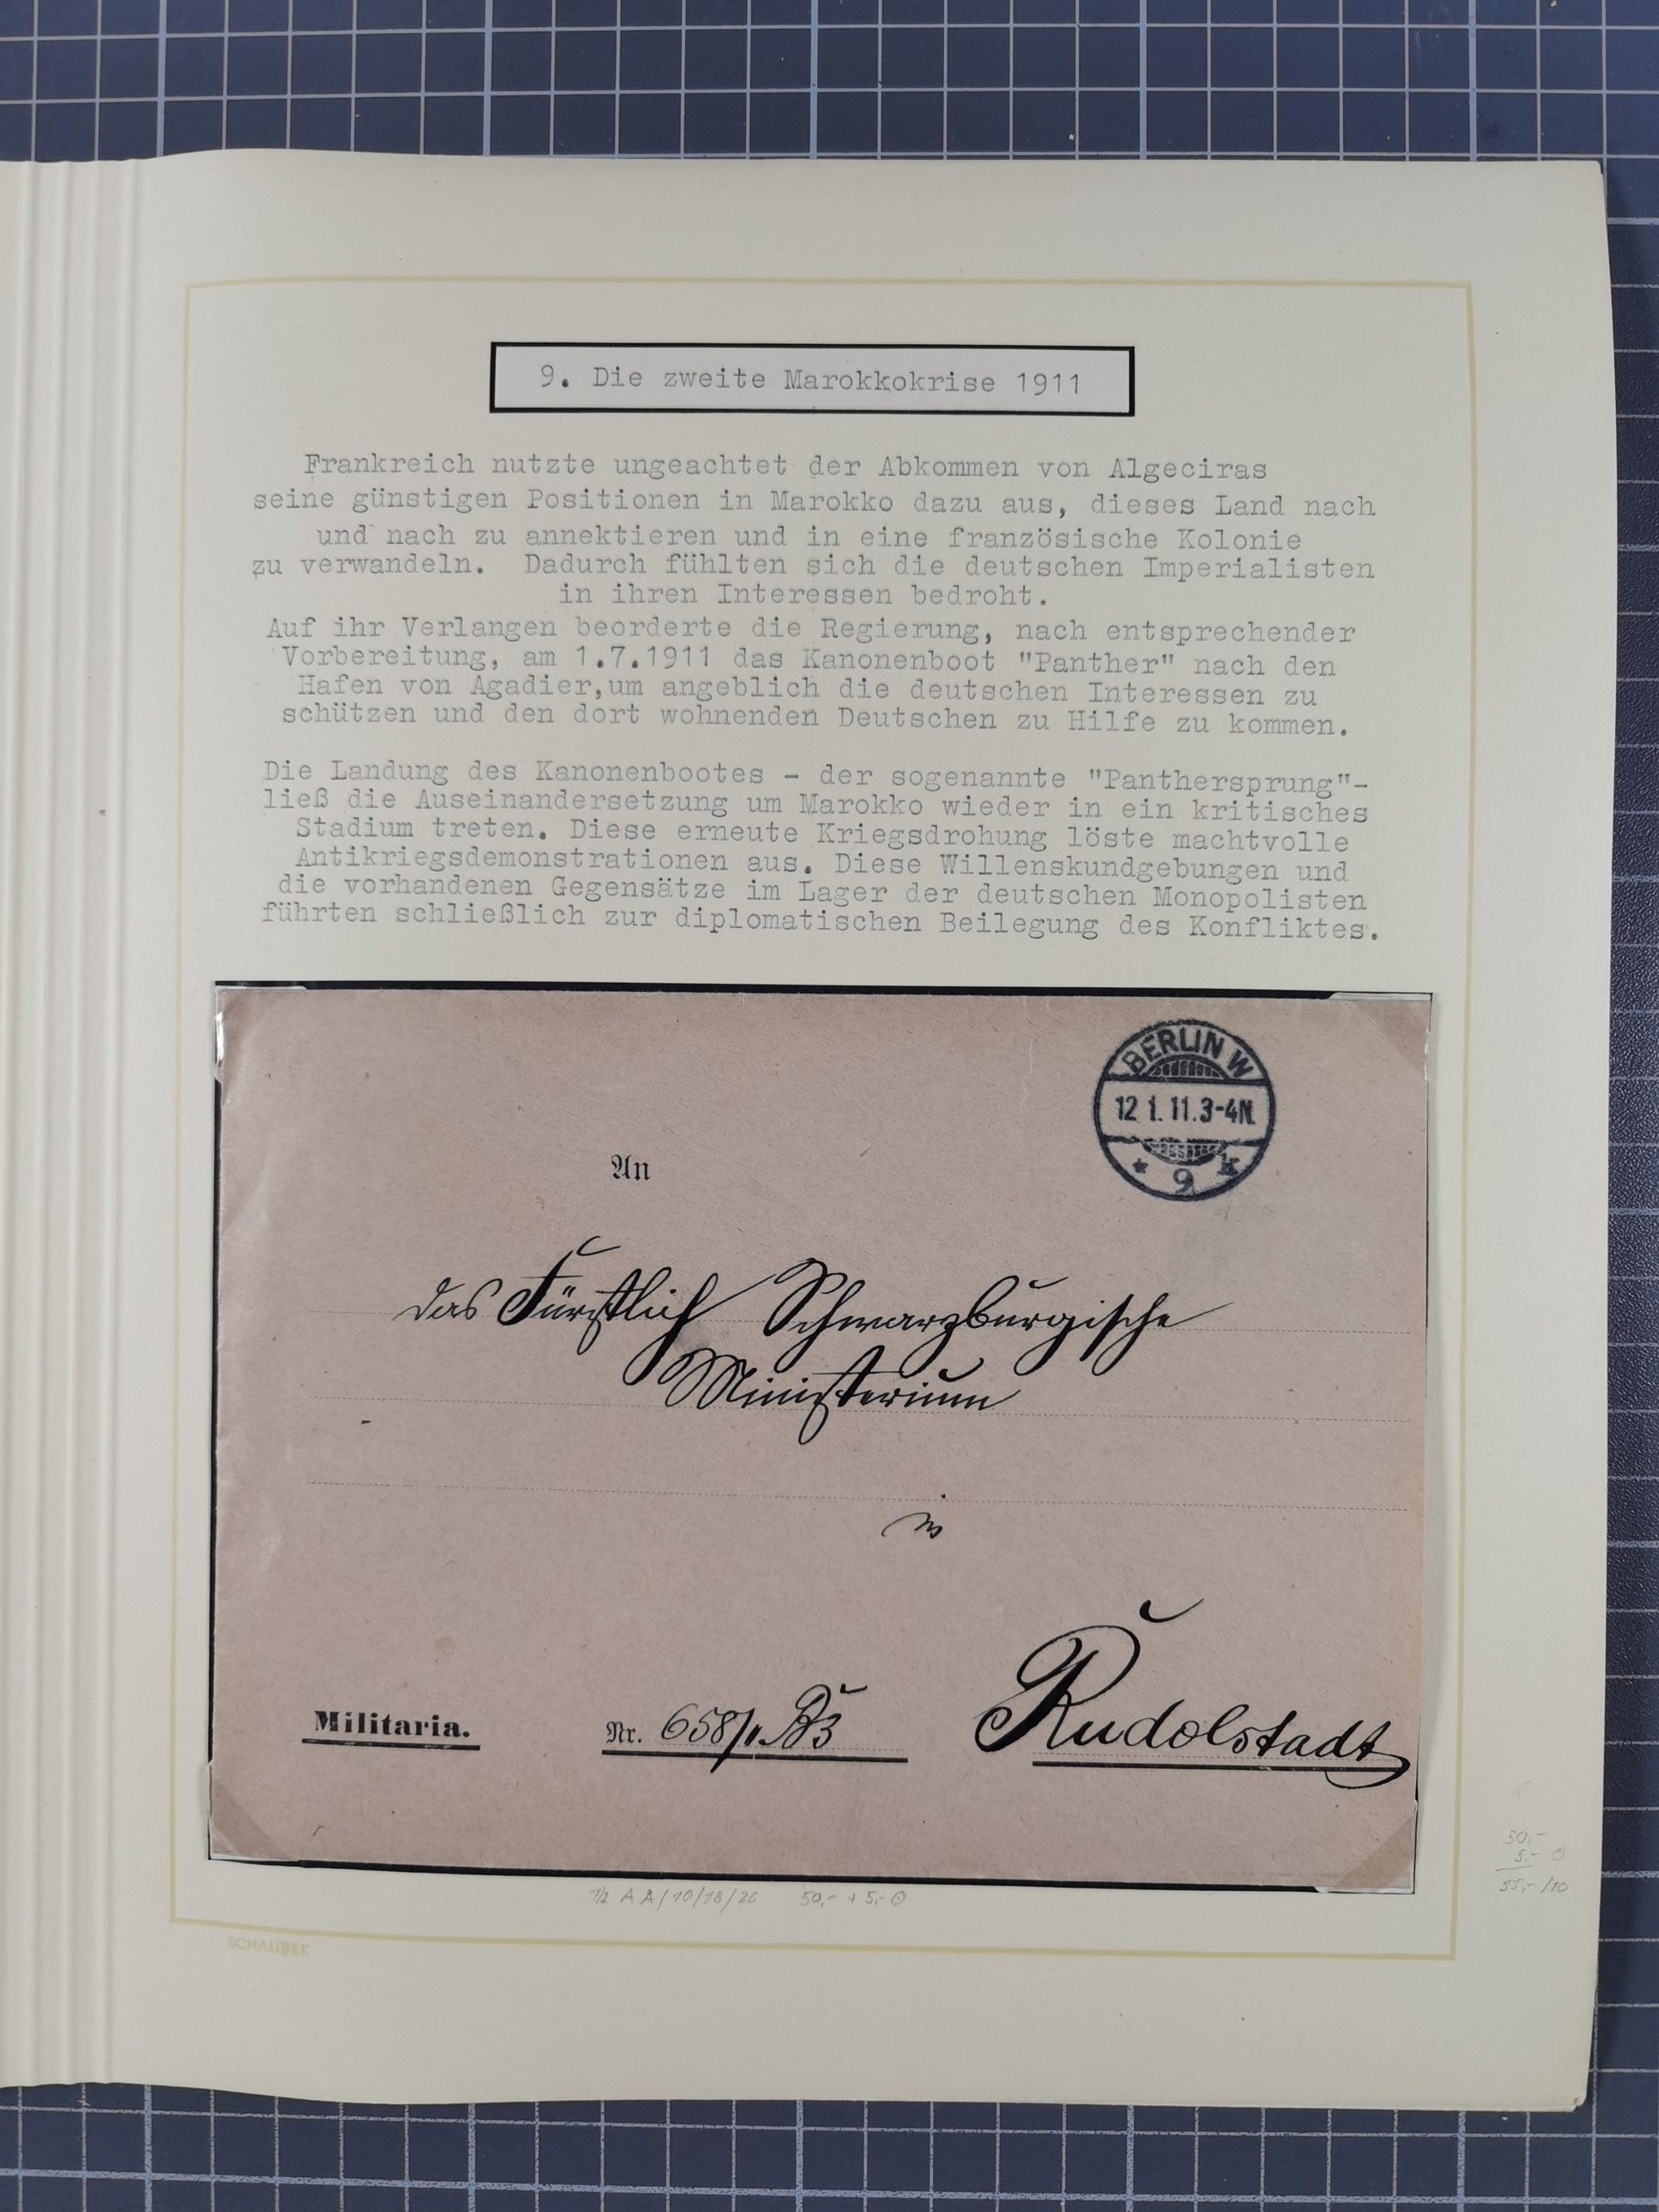 9. Die zweite Marokkokrise 1911
Frankreich nutzte ungeachtet der Abkommen von Algeciras
seine günstigen Positionen in Marokko dazu aus, dieses Land nach
und nach zu annektieren und in eine französische Kolonie
zu verwandeln. Dadurch fühlten sich die deutschen Imperialisten
in ihren Interessen bedroht.
Auf ihr Verlangen beorderte die Regierung, nach entsprechender
Vorbereitung, am 1.7.1911 das Kanonenboot "Panther" nach den
Hafen von Agadier,um angeblich die deutschen Interessen zu
schützen und den dort wohnenden Deutschen zu Hilfe zu kommen.
Die Landung des Kanonenbootes - der sogenannte "Panthersprung"-
ließ die Auseinandersetzung um Marokko wieder in ein kritisches
Stadium treten. Diese erneute Kriegsdrohung löste machtvolle
Antikriegsdemonstrationen aus. Diese Willenskundgebungen und
die vorhandenen Gegensätze im Lager der deutschen Monopolisten
führten schließlich zur diplomatischen Beilegung des Konfliktes.
BERLIN W
12 1. 11.3-4N.
* 9 k
An
das Fürstlich Schwarzburgische
Ministerium
in
Rudolstadt
Militaria.
Nr. 658/11. B3
50,-
5,-
55,-/10
1/2 A A/10/18/20 50,- + 5,-
SCHAUBEK